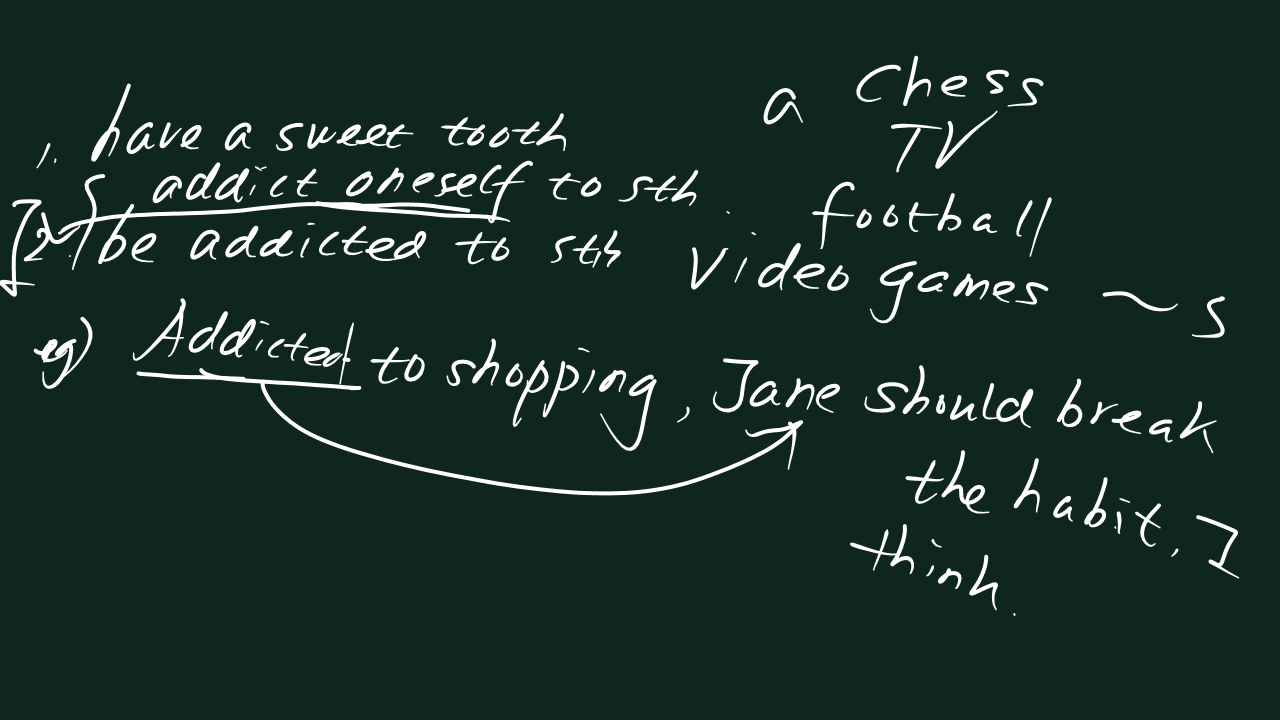 1. have a sweet tooth
2. addict oneself to sth.
be addicted to sth
a Chess
TV
football
Video games ~ s
eg) Addicted to shopping, Jane should break
the habit, I
think.